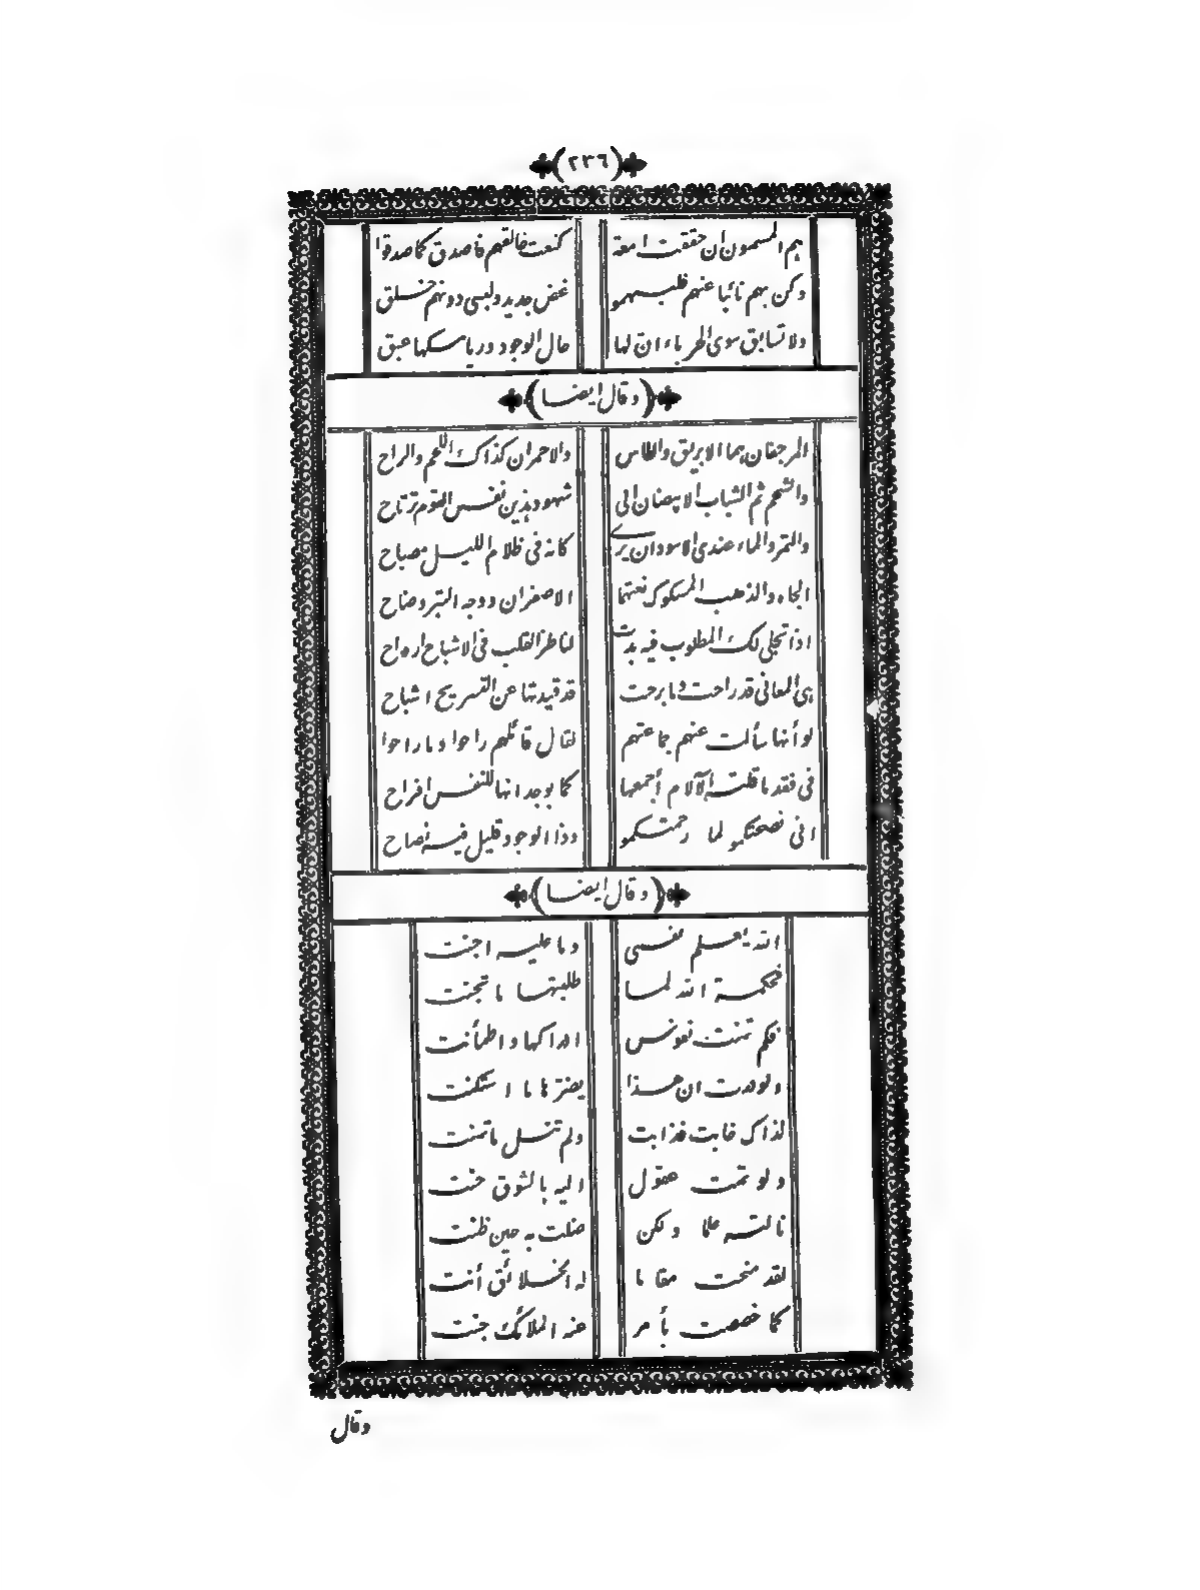 (٢٣٦)
هم المسمون ان حققت امعة كنعت خالقهم فاصدق كما صدقوا
وكن بهم نائبا عنهم فلبسهمو غض جديد ولبسى دونهم خلق
ولا تسابق سوى الحرباء ان لها حال الوجود وريا مسكها عبق
(وقال ايضا)
المرجفان هما الابريق والطاس والاحمران كذاك اللحم والراح
والشحم ثم الشباب الابيضان الى شهود هذين نفس القوم ترتاح
والتمر والماء عندى الاسودان يرى كانه فى ظلام الليل مصباح
الجاه والذهب المسكوك نعتهما الاصفران ووجه التبر وضاح
اذا تجلى لك المطلوب فيه بدت لناظر القلب فى الاشباح ارواح
هى المعانى قد راحت وما برحت قد قيدتها عن التسريح اشباح
لو أنها سألت عنهم جماعتهم لقال قائلهم راحوا وما راحوا
فى فقد ما قلته الآلام أجمعها كما بوجدانها للنفس افراح
انى نصحتكمو لما رحمتكمو وذا الوجود قليل فيه نصاح
(وقال ايضا)
الله يعلم نفسى وما عليه اجنت
فحكمة الله لما طلبتها ما تجنت
فكم تمنت نفوس ادراكها واطمأنت
ولو درت ان هذا يضرها ما استكنت
لذاك خابت فذابت ولم تنل ما تمنت
ولو تمت عقول اليه بالشوق حنت
نالته علما ولكن ضلت به حين ظنت
لقد منحت مقاما له الخلائق أنت
كما خصصت بأمر عنه الملائك جنت
وقال